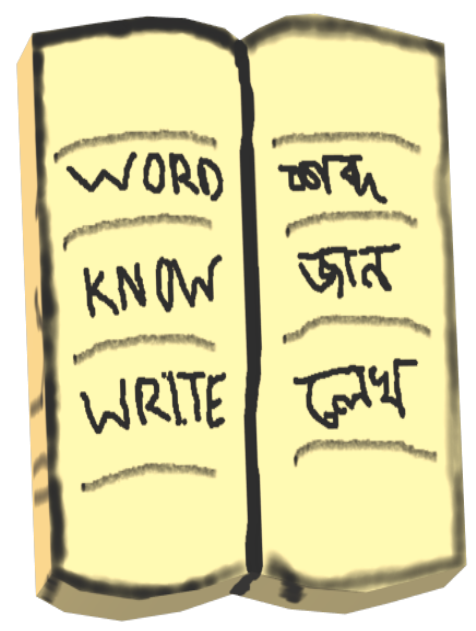 WORD
KNOW
WRITE
শব্দ
জান
লেখ